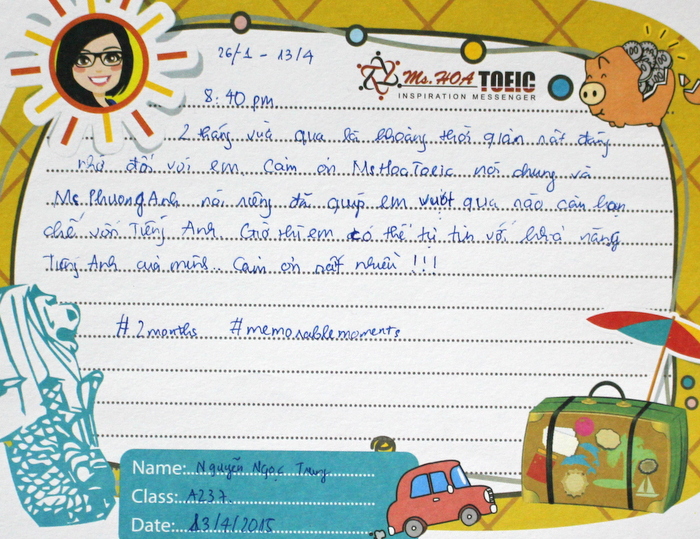 26/1 - 13/4
Ms.HOA TOEIC
INSPIRATION MESSENGER
8:40 pm
2 tháng vừa qua là khoảng thời gian rất đáng
nhớ đối với em. Cảm ơn MsHoaToeic nói chung và
Ms.Phương Anh nói riêng đã giúp em vượt qua rào cản hạn
chế với Tiếng Anh. Giờ thì em có thể tự tin với khả năng
Tiếng Anh của mình.. Cảm ơn rất nhiều !!!
#2months #memorablemoments
Name: Nguyễn Ngọc Trung
Class: A237
Date: 13/4/2015